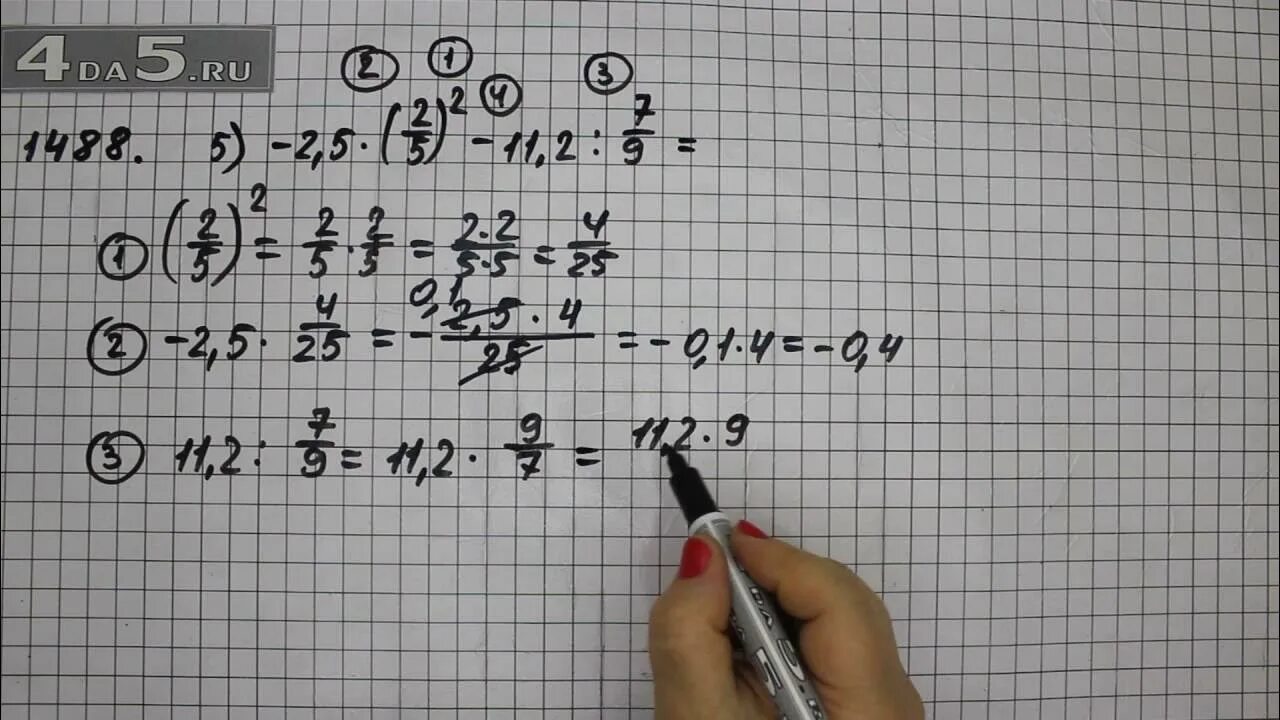 4DA5.RU
② ① ④ ③
1488. 5) -2,5 · (2/5)² - 11,2 : 7/9 =
① (2/5)² = 2/5 · 2/5 = 2·2/5·5 = 4/25
0,1
② -2,5 · 4/25 = - 2,5 · 4/25 = - 0,1 · 4 = - 0,4
③ 11,2 : 7/9 = 11,2 · 9/7 = 11,2 · 9